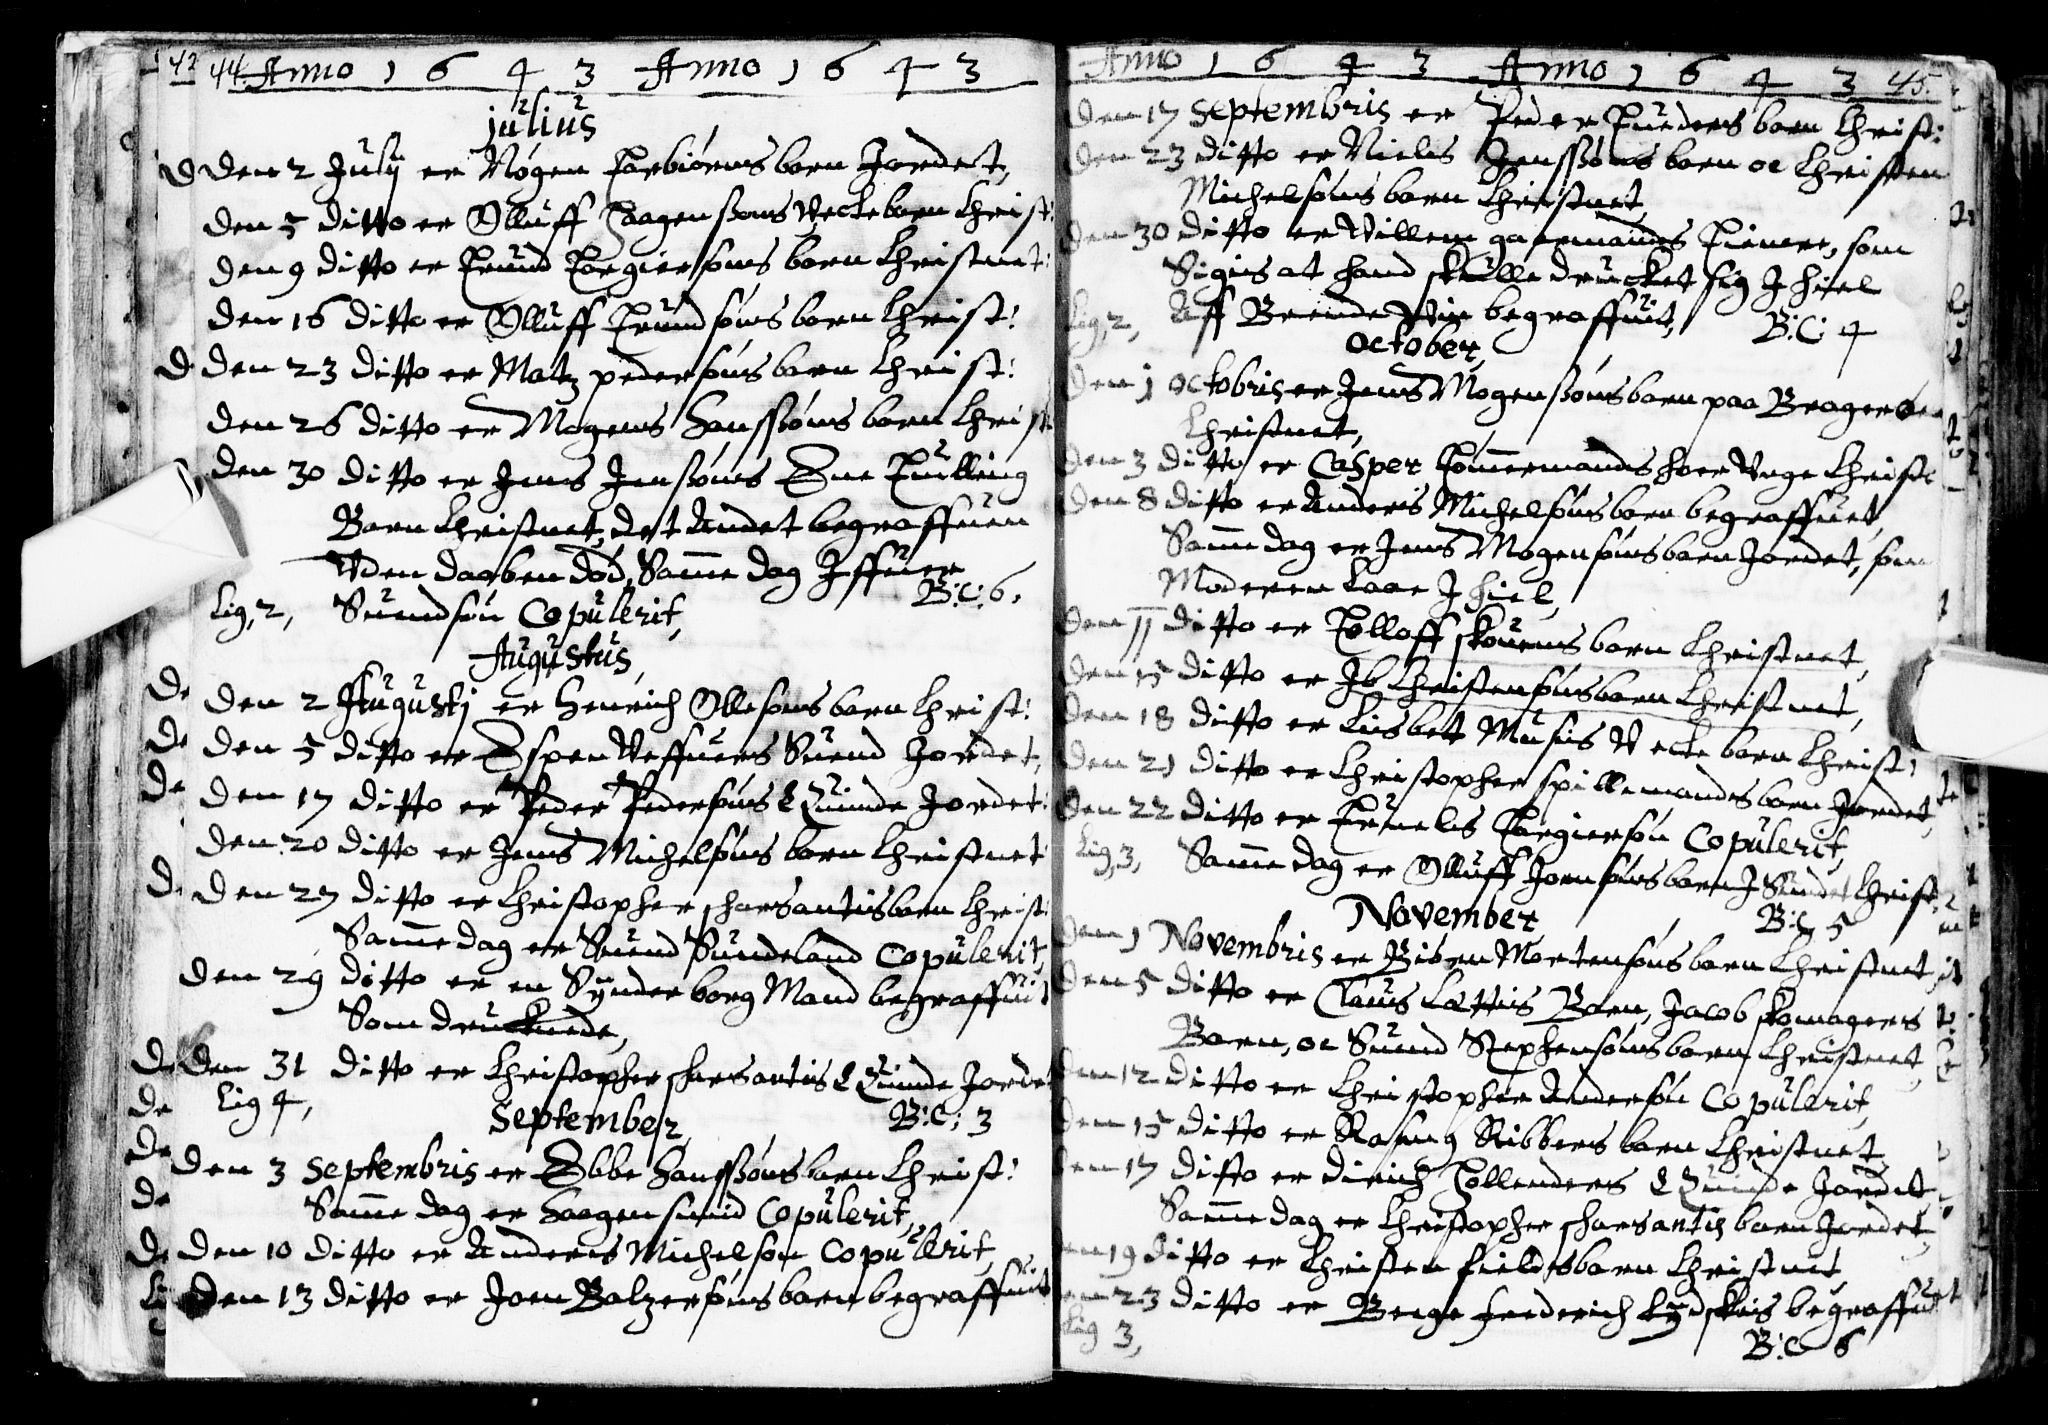 44. Anno 1 6 4 3 Anno 1 6 4 3
julius
Den 2 July er Mogen Torbiörns barn Jordet,
Den 5 ditto er Olluff Haagenßøns Vecke barn Christ:
Den 9 ditto er Trund Torgiersøns barn Christnet:
Den 16 ditto er Olluff Trundsøns barn Christ:
Den 23 ditto er Matz pedersøns barn Christ:
Den 26 ditto er Mogens Hanssøns barn Christ:
Den 30 ditto er Jens Jensøns Ene Tuilling
Barn Christnet, det Andet begraffuen
Vden daaben død, Samme dag Iffuer
Lig, 2, Suendsøn Copulerit, B:C: 6.
Augustus,
Den 2 Augustj er Henrich Ollesøns barn Christ:
Den 5 ditto er Espen Reffuers Suend Jordet,
Den 17 ditto er Peder Pedersøns Quinde Jordet:
Den 20 ditto er Jens Michelsøns barn Christnet
Den 27 ditto er Christopher scharsantis barn Christ:
Samme dag er Suend Sundeland Copulerit,
Den 29 ditto er en Synderborg Mand begraffuit
Som druknede,
Den 31 ditto er Christopher scharsantis Quinde Jordet
Lig 4, B:C: 3
September,
Den 3 Septembris er Ebbe Hanssøns barn Christ:
Samme dag er Haagen smid Copulerit,
Den 10 ditto er Anders Michelsøn Copullerit,
Den 13 ditto er Joen Balzersøns barn begraffuit
Anno 1 6 4 3 Anno 1 6 4 3 45.
Den 17 Septembris er Peder Tueders barn Christ:
Den 23 ditto er Niels Jenssøns barn oc Christen
Michelsøns barn Christnet
Den 30 ditto er Villem gartmands Tienere, som
Sigis at hand skulle drucket sig J hiel
Lig, 2, Aff Brende Vin begraffuit, B:C: 4
October,
Den 1 Octobris er Jens Mogensøns barn paa Bragernes
Christnet,
Den 3 ditto er Casper Tømmermands hoer Vnge Christ:
Den 8 ditto er Anders Michelsøns barn begraffuet,
Samme dag er Jens Mogensøns barn Jordet, som
Moderen laae J hiel,
Den 11 ditto er Tolloff skouens barn Christnet,
Den 15 ditto er Ib Christensøns barn Christnet,
Den 18 ditto er Lisbet Musis Vecke barn Christ:
Den 21 ditto er Christopher spillemands barn Jordet,
Den 22 ditto er Truels Torgiersøn Copulerit,
Lig, 3, Samme dag er Olluff Joensøns barn J Sundet Christ:
November, B:C 5
Den 1 Novembris er Biörn Mortensøns barn Christnet
Den 5 ditto er Claus Lættis Barn, Jacob skomagers
Barn, oc Suend Stephensøns barn Christnet,
Den 12 ditto er Christopher Andersøn Copulerit,
Den 15 ditto er Rasmus Ribbers barn Christnet
Den 17 ditto er dirich Hollenders Quinde Jordet
Samme dag er Christopher scharsantis barn Jordet,
Den 19 ditto er Christen fields barn Christnet
Den 23 ditto er Berge frederich Lydskis begraffuet
Lig 3, B:C 6